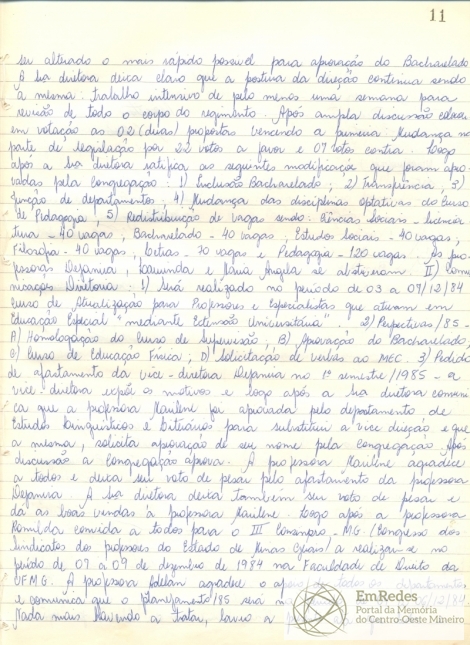 11
ser alterado o mais rápido possível para aprovação do Bacharelado
A Sra diretora deixa claro que a postura da direção continua sendo
a mesma: trabalho intensivo de pelo menos uma semana para
revisão de todo o corpo do regimento. Após ampla discussão
em votação as 02 (duas) propostas vencendo a primeira: Mudança na
parte de legislação por 22 votos a favor e 07 votos contra. Logo
após a Sra diretora ratifica as seguintes modificações que foram apro-
vadas pela Congregação: 1) Inclusão Bacharelado; 2) Transferência; 3)
Junção de departamentos; 4) Mudança das disciplinas optativas do Curso
de Pedagogia; 5) Redistribuição de vagas sendo: Ciências Sociais - licencia
tura - 40 vagas, Bacharelado - 40 vagas; Estudos Sociais - 40 vagas;
Filosofia - 40 vagas, Letras - 70 vagas e Pedagogia - 120 vagas. As pro-
fessoras Dejanira, e Maria Angela se abstiveram. II) Comu
nicações Diretoria: 1) Será realizado no período de 03 a 07/12/84
Curso de Atualização para Professores e Especialistas que atuam em
Educação Especial "mediante Extensão Universitária" 2) Perspectivas/85 -
A) Homologação do Curso de Supervisão; B) Aprovação do Bacharelado;
C) Curso de Educação Física; D) Solicitação de verbas ao MEC. 3) Pedido
de afastamento da vice-diretora Dejanira no 1º semestre/1985 - a
vice-diretora expõe os motivos e logo após a Sra diretora comuni
ca que a professora Marilene foi aprovada pelo departamento de
Estudos Linguísticos e Literários para substituir a vice direção e que
a mesma, solicita aprovação de seu nome pela Congregação. Após
discussão a Congregação aprova. A professora Marilene agradece
a todos e deixa seu voto de pesar pelo afastamento da professora
Dejanira. A Sra diretora deixa também seu voto de pesar e
dá as boas vindas à professora Marilene. Logo após a professora
Romilda convida a todos para o III - MG (Congresso dos
Sindicatos dos professores do Estado de Minas Gerais) a realizar-se no
período de 07 a 09 de dezembro de 1984 na Faculdade de Direito da
UFMG. A professora agradece o apoio de todos os departamentos
e comunica que o planejamento/85 será /12/84.
Nada mais havendo a tratar, lavro a
EmRedes
Portal da Memória
do Centro-Oeste Mineiro